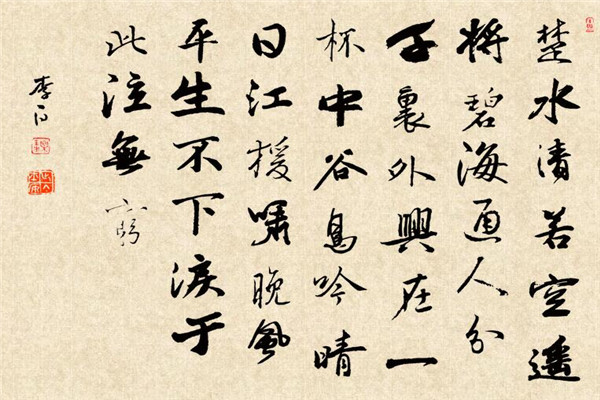 楚水清若空遥
将碧海通人分
千裏外興在一
杯中谷鳥吟晴
日江猨嘯晚風
平生不下淚于
此泣無窮
李白